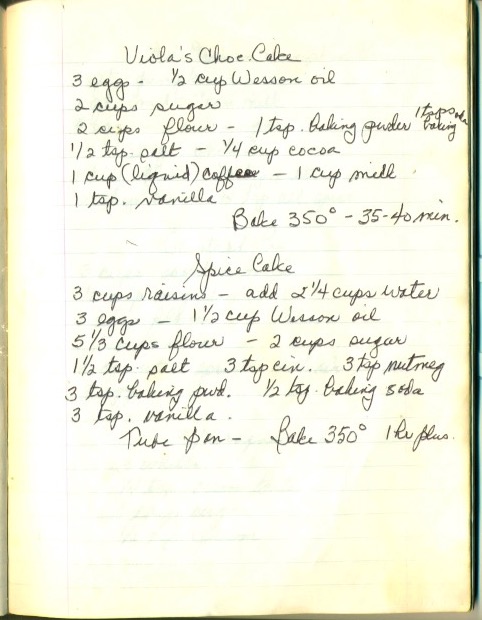 Viola's Choc. Cake
3 eggs - ½ cup Wesson oil
2 cups sugar
2 cups flour - 1 tsp. baking powder 1 tsp soda baking
½ tsp. salt - ¼ cup cocoa
1 cup (liquid) coffee - 1 cup milk
1 tsp. vanilla
Bake 350° - 35-40 min.
Spice Cake
3 cups raisins - add 2¼ cups water
3 eggs - 1½ cup Wesson oil
5⅓ cups flour - 2 cups sugar
1½ tsp. salt 3 tsp cin. 3 tsp nutmeg
3 tsp. baking pwd. ½ tsp. baking soda
3 tsp. vanilla.
Tube pan - Bake 350° 1 hr plus.